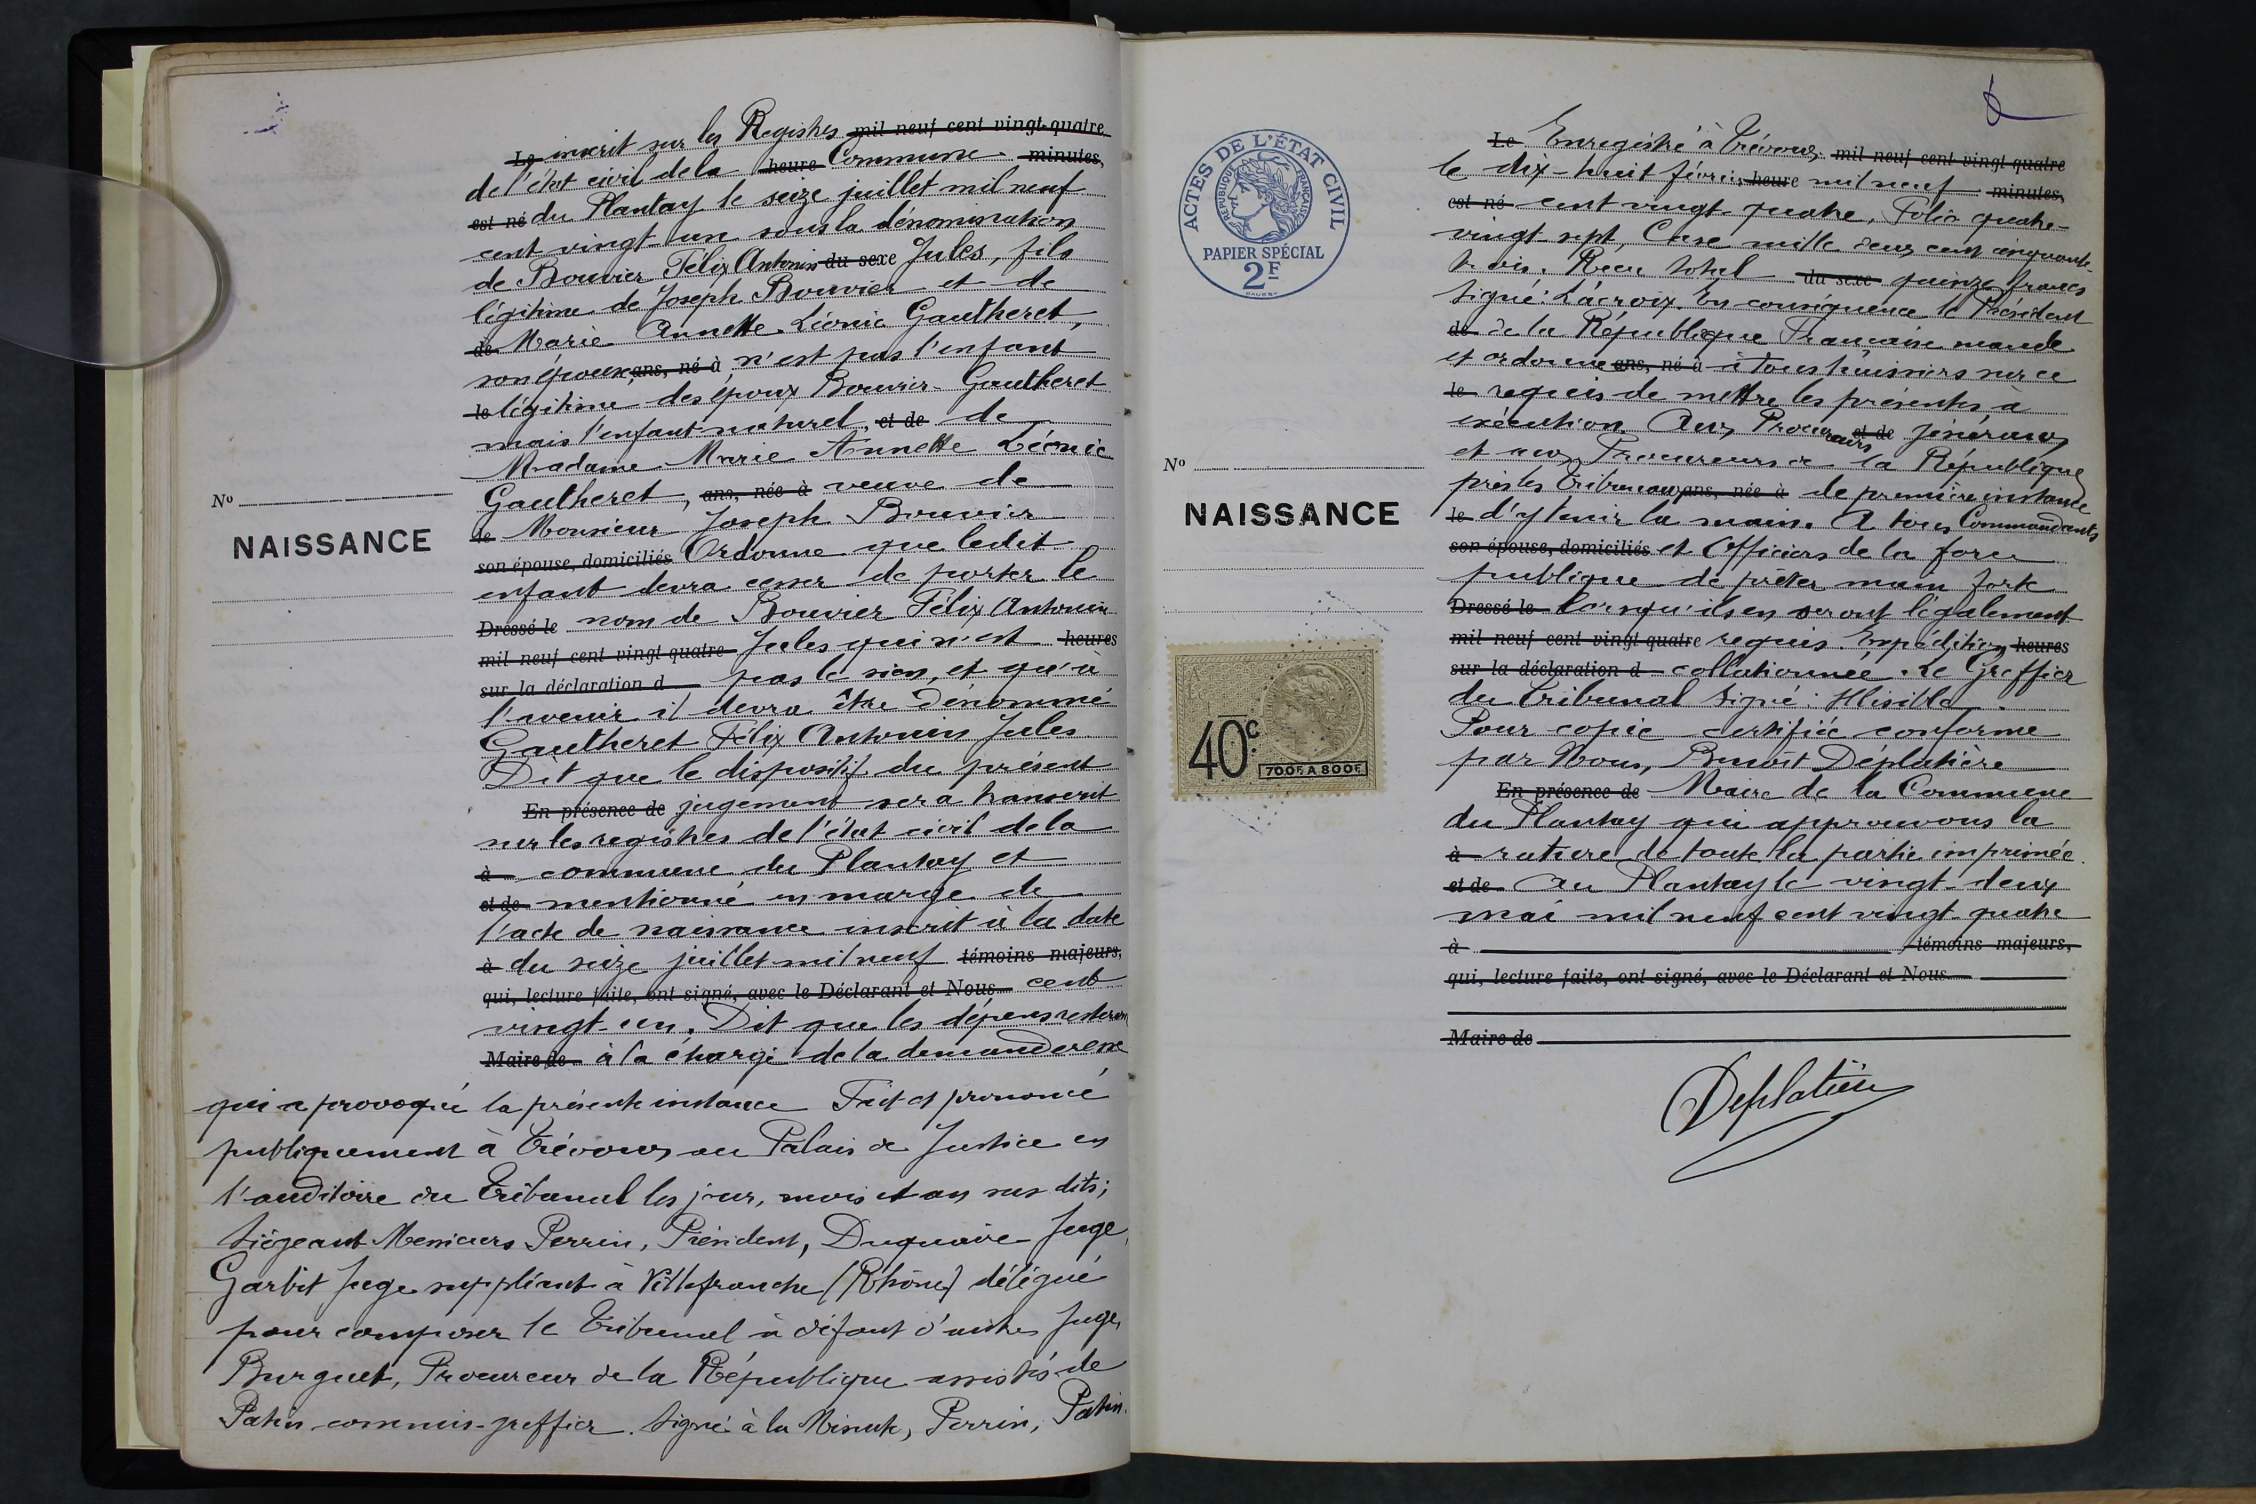 Le inscrit sur les Registres mil neuf cent vingt-quatre
de l'état civil de la heure Commune minutes,
est né du Plantay le seize juillet mil neuf
cent vingt-un sous la dénomination
de Bouvier Félix Antonin du sexe Jules, fils
légitime de Joseph Bouvier et de
de Marie Annette Léonie Gautheret,
son épouse, ans, né à n'est pas l'enfant
le légitime des époux Bouvier-Gautheret
mais l'enfant naturel, et de de
Madame Marie Annette Léonie
Gautheret, ans, née à veuve de
le Monsieur Joseph Bouvier
son épouse, domiciliés Ordonne que ledit
enfant devra cesser de porter le
Dressé le nom de Bouvier Félix Antonin
mil neuf cent vingt-quatre Jules qui n'est heures
sur la déclaration d pas le sien, et qu'à
l'avenir il devra être dénommé
Gautheret Félix Antonin Jules
Dit que le dispositif du présent
En présence de jugement sera transcrit
sur les registres de l'état civil de la
à commune du Plantay et
et de mentionné en marge de
l'acte de naissance inscrit à la date
à du seize juillet mil neuf témoins majeurs,
qui, lecture faite, ont signé, avec le Déclarant et Nous cent
vingt-un. Dit que les dépens resteront
Maire de à la charge de la demanderesse
qui a provoqué la présente instance Fait et prononcé
publiquement à Trévoux au Palais de Justice en
l'auditoire du Tribunal les jour, mois et an sus dits;
Siégeant Messieurs Perrin, Président, Duquaire Juge,
Garbit Juge suppléant à Villefranche (Rhône) délégué
pour composer le Tribunal à défaut d'autres Juges,
Burguet, Procureur de la République assistés de
Patin commis-greffier. Signé à la Minute, Perrin, Patin.
No
NAISSANCE
Le Enregistré à Trévoux mil neuf cent vingt-quatre
le dix-huit février heure mil neuf minutes,
est né cent vingt-quatre, Folio quatre-
vingt-sept, Case mille deux cent cinquante-
trois. Reçu total du sexe quinze francs
Signé: Lacroix. En conséquence le Président
de de la République Française mande
et ordonne ans, né à à tous huissiers sur ce
le requis de mettre les présentes à
exécution Aux Procureurs et de généraux
et aux Procureurs de la République
près les Tribunaux ans, née à de première instance
le d'y tenir la main. A tous Commandants
son épouse, domiciliés et Officiers de la force
publique de prêter main forte
Dressé le lorsqu'ils en seront légalement
mil neuf cent vingt-quatre requis. Expédition heures
sur la déclaration d collationnée. Le Greffier
du Tribunal signé: Illisible
Pour copie certifiée conforme
par Nous, Benoit Déplatière
En présence de Maire de la Commune
du Plantay qui approuvons la
à rature de toute la partie imprimée.
et de Au Plantay le vingt-deux
mai mil neuf cent vingt-quatre
à témoins majeurs,
qui, lecture faite, ont signé, avec le Déclarant et Nous
Maire de
Deplatière
ACTES DE L'ÉTAT CIVIL
RÉPUBLIQUE FRANÇAISE
PAPIER SPÉCIAL
2F
No
NAISSANCE
40c
700F A 800F